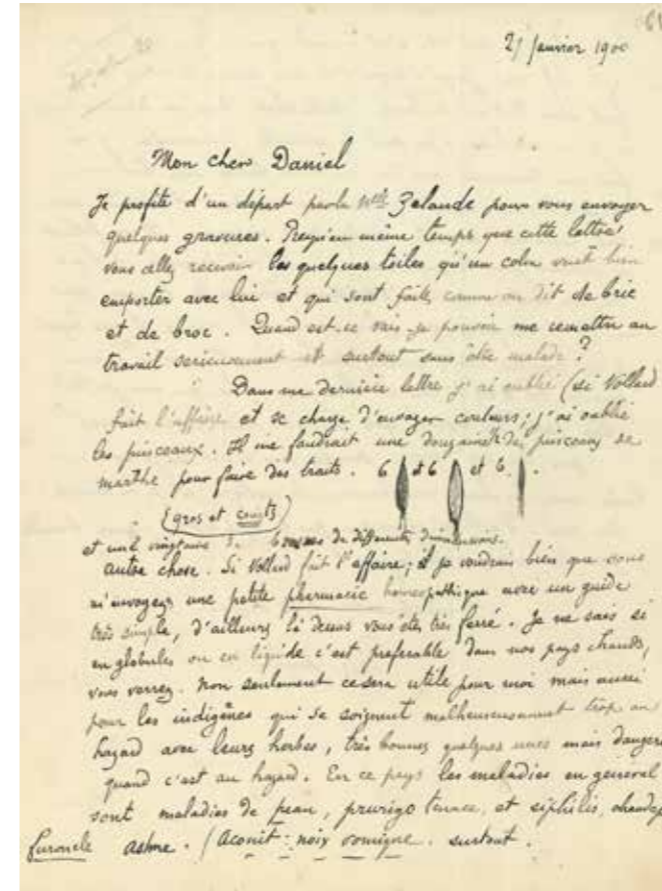 27 Janvier 1900
Mon cher Daniel
Je profite d'un départ par la Nlle Zelande pour vous envoyer
quelques gravures. Presqu'en même temps que cette lettre
vous allez recevoir les quelques toiles qu'un colon veut bien
emporter avec lui et qui sont faites comme on dit de bric
et de broc. Quand est-ce vais-je pouvoir me remettre au
travail serieusement et surtout sans être malade ?
Dans ma dernière lettre j'ai oublié (si Vollard
fait l'affaire et se charge d'envoyer couleurs; j'ai oublié
les pinceaux. Il me faudrait une douzaine de pinceaux de
marthe pour faire des traits. 6 et 6 et 6.
(gros et courts)
et une vingtaine de de differentes dimensions.
autre chose. Si Vollard fait l'affaire; je voudrais bien que vous
m'envoyez une petite pharmacie homeopathique avec un guide
très simple, d'ailleurs là dessus vous êtes très ferré. Je ne sais si
en globules ou en liquide c'est preferable dans nos pays chauds,
vous verrez. Non seulement ce sera utile pour moi mais aussi
pour les indigènes qui se soignent malheureusement trop au
hazard avec leurs herbes, très bonnes quelques unes mais dangere
quand c'est au hazard. En ce pays les maladies en general
sont maladies de peau, prurigo tenace, et siphilis, chaudep
furoncle asthme. (Aconit - noix vomique. surtout.